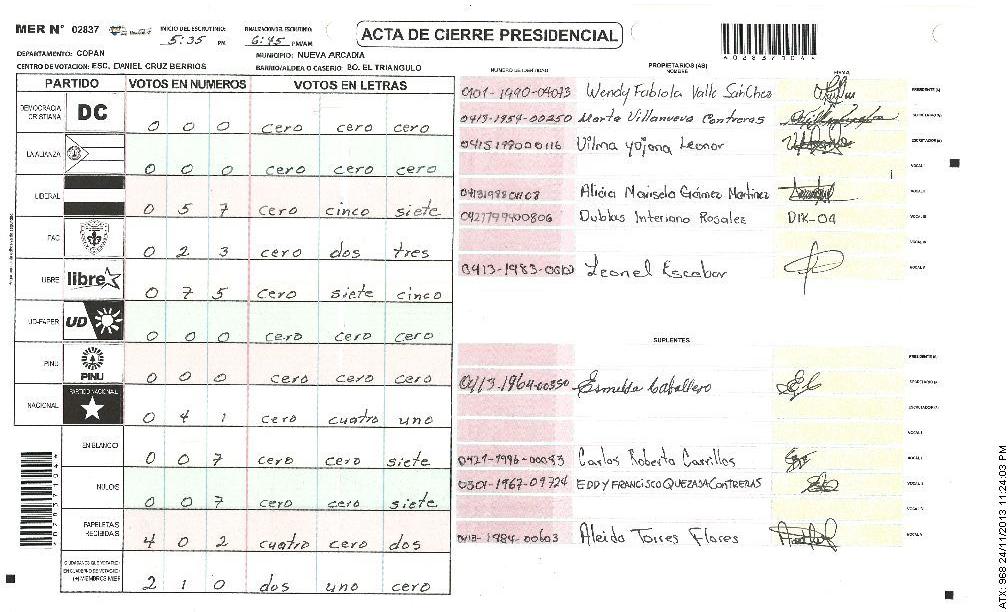 MER Nº 02837
INICIO DEL ESCRUTINIO:
5:35 PM
FINALIZACION DEL ESCRUTINIO:
6:45 PM/AM
ACTA DE CIERRE PRESIDENCIAL
DEPARTAMENTO: COPAN
MUNICIPIO: NUEVA ARCADIA
CENTRO DE VOTACION: ESC. DANIEL CRUZ BERRIOS
BARRIO/ALDEA O CASERIO: BO. EL TRIANGULO
PARTIDO VOTOS EN NUMEROS VOTOS EN LETRAS
DEMOCRACIA CRISTIANA DC 0 0 0 cero cero cero
LA ALIANZA 0 0 0 cero cero cero
LIBERAL 0 5 7 cero cinco siete
PAC 0 2 3 cero dos tres
LIBRE libre 0 7 5 cero siete cinco
UD-FAPER UD 0 0 0 cero cero cero
PINU PINU 0 0 0 cero cero cero
NACIONAL PARTIDO NACIONAL 0 4 1 cero cuatro uno
EN BLANCO 0 0 7 cero cero siete
NULOS 0 0 7 cero cero siete
PAPELETAS RECIBIDAS 4 0 2 cuatro cero dos
(+) MIEMBROS MER 2 1 0 dos uno cero
NUMERO DE IDENTIDAD
PROPIETARIOS (AS)
NOMBRE
FIRMA
0401-1990-04073 Wendy Fabiola Valle Sanchez PRESIDENTE (A)
0413-1954-00250 Marta Villanueva Contreras SECRETARIO (A)
0415199000116 Vilma yojana Leonor ESCRUTADOR (A)
VOCAL I
Alicia Marisela Gámez Martinez VOCAL II
0421199400806 Dubblas Interiano Rosales DIR-04 VOCAL III
VOCAL IV
Leonel Escobar VOCAL V
SUPLENTES
PRESIDENTE (A)
0413-1964-00350 Esmelda Caballero SECRETARIO (A)
ESCRUTADOR (A)
VOCAL I
0421-1996-00083 Carlos Roberto Carrillos VOCAL II
0301-1967-09724 EDDY FRANCISCO QUEZADA CONTRERAS VOCAL III
VOCAL IV
0413-1984-00603 Aleida Torres Flores VOCAL V
ATX: 968 24/11/2013 11:24:03 PM